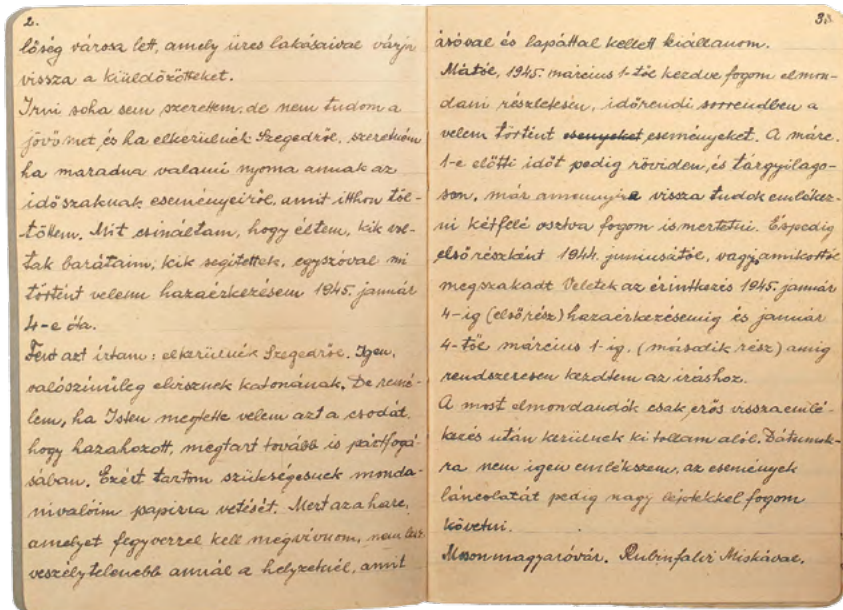 2.
lőség városa lett, amely üres lakásaival várja
vissza a kiüldözötteket.
Irni soha sem szerettem, de nem tudom a
jövőmet, és ha elkerülnék Szegedről, szeretném
ha maradna valami nyoma annak az
időszaknak eseményeiről, amit itthon töl-
töttem. Mit csináltam, hogy éltem, kik vol-
tak barátaim, kik segítettek, egyszóval mi
történt velem hazaérkezésem 1945. január
4-e óta.
Fent azt írtam: elkerülnék Szegedről. Igen,
valószinüleg elvisznek katonának. De remé-
lem, ha Isten megtette velem azt a csodát,
hogy hazahozott, megtart tovább is pártfogá-
sában. Ezért tartom szükségesnek monda-
nivalóim papirra vetését. Mert az a harc,
amelyet fegyverrel kell megvívnom, nem lesz
veszélytelenebb annál a helyzetnél, amit
3.
ásóval és lapáttal kellett kiállanom.
Mától, 1945. március 1-től kezdve fogom elmon-
dani részletesen, időrendi sorrendben a
velem történt esenyeket eseményeket. A márc.
1-e előtti időt pedig röviden, és tárgyilago-
son, már amennyire vissza tudok emlékez-
ni kétfelé osztva fogom ismertetni. Éspedig
első részként 1944. juniusától, vagy amikortól
megszakadt Veletek az érintkezés 1945. január
4-ig (első rész) hazaérkezésemig és január
4-től március 1-ig, (második rész) amig
rendszeresen kezdtem az iráshoz.
A most elmondandók csak erős visszaemlé-
kezés után kerülnek ki tollam alól. Dátumok-
ra nem igen emlékszem, az események
láncolatát pedig nagy léptekkel fogom
követni.
Mosonmagyaróvár. Rubinfalvi Miskával.